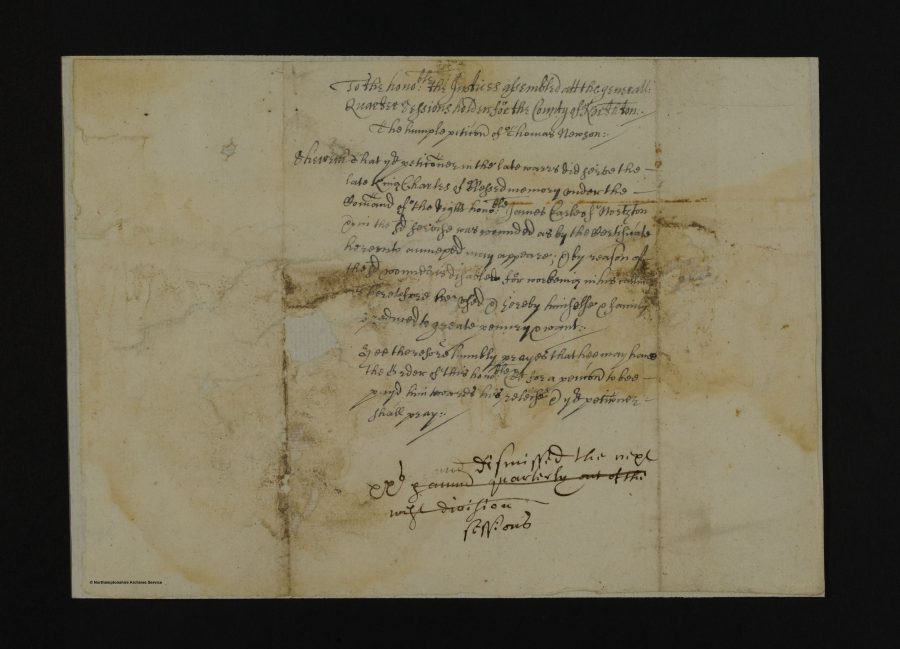 To the hono:ble the Justices assembled att the generall
Quarter Sessions holden for the County of North:ton:
The humple petic̄on of Thomas Newson:
Sheweth That ye peticōner in the late warrs did serve the
late King Charles of Blessed memory under the
Com̄and of the Right hono:ble James Earle of Northton
& in the sd service was wounded as by the Certificate
hereunto annexed may appeare; & by reason of
the sd wounds is disabled for workeing in his calling
heretofore he used & thereby himselfe & family
reduced to greate penury & want:
Hee therefore humbly prayes that hee may have
the Order of this hono:ble Cort for a pencōn to bee
payd him towards his releife & ye peticōner
shall pray:
dismissed the next
xxs p annu quarterly out of the
west division
sessions
© Northamptonshire Archives Service